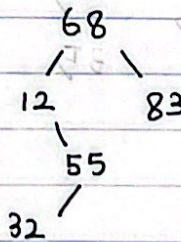 68
12 83
55
32